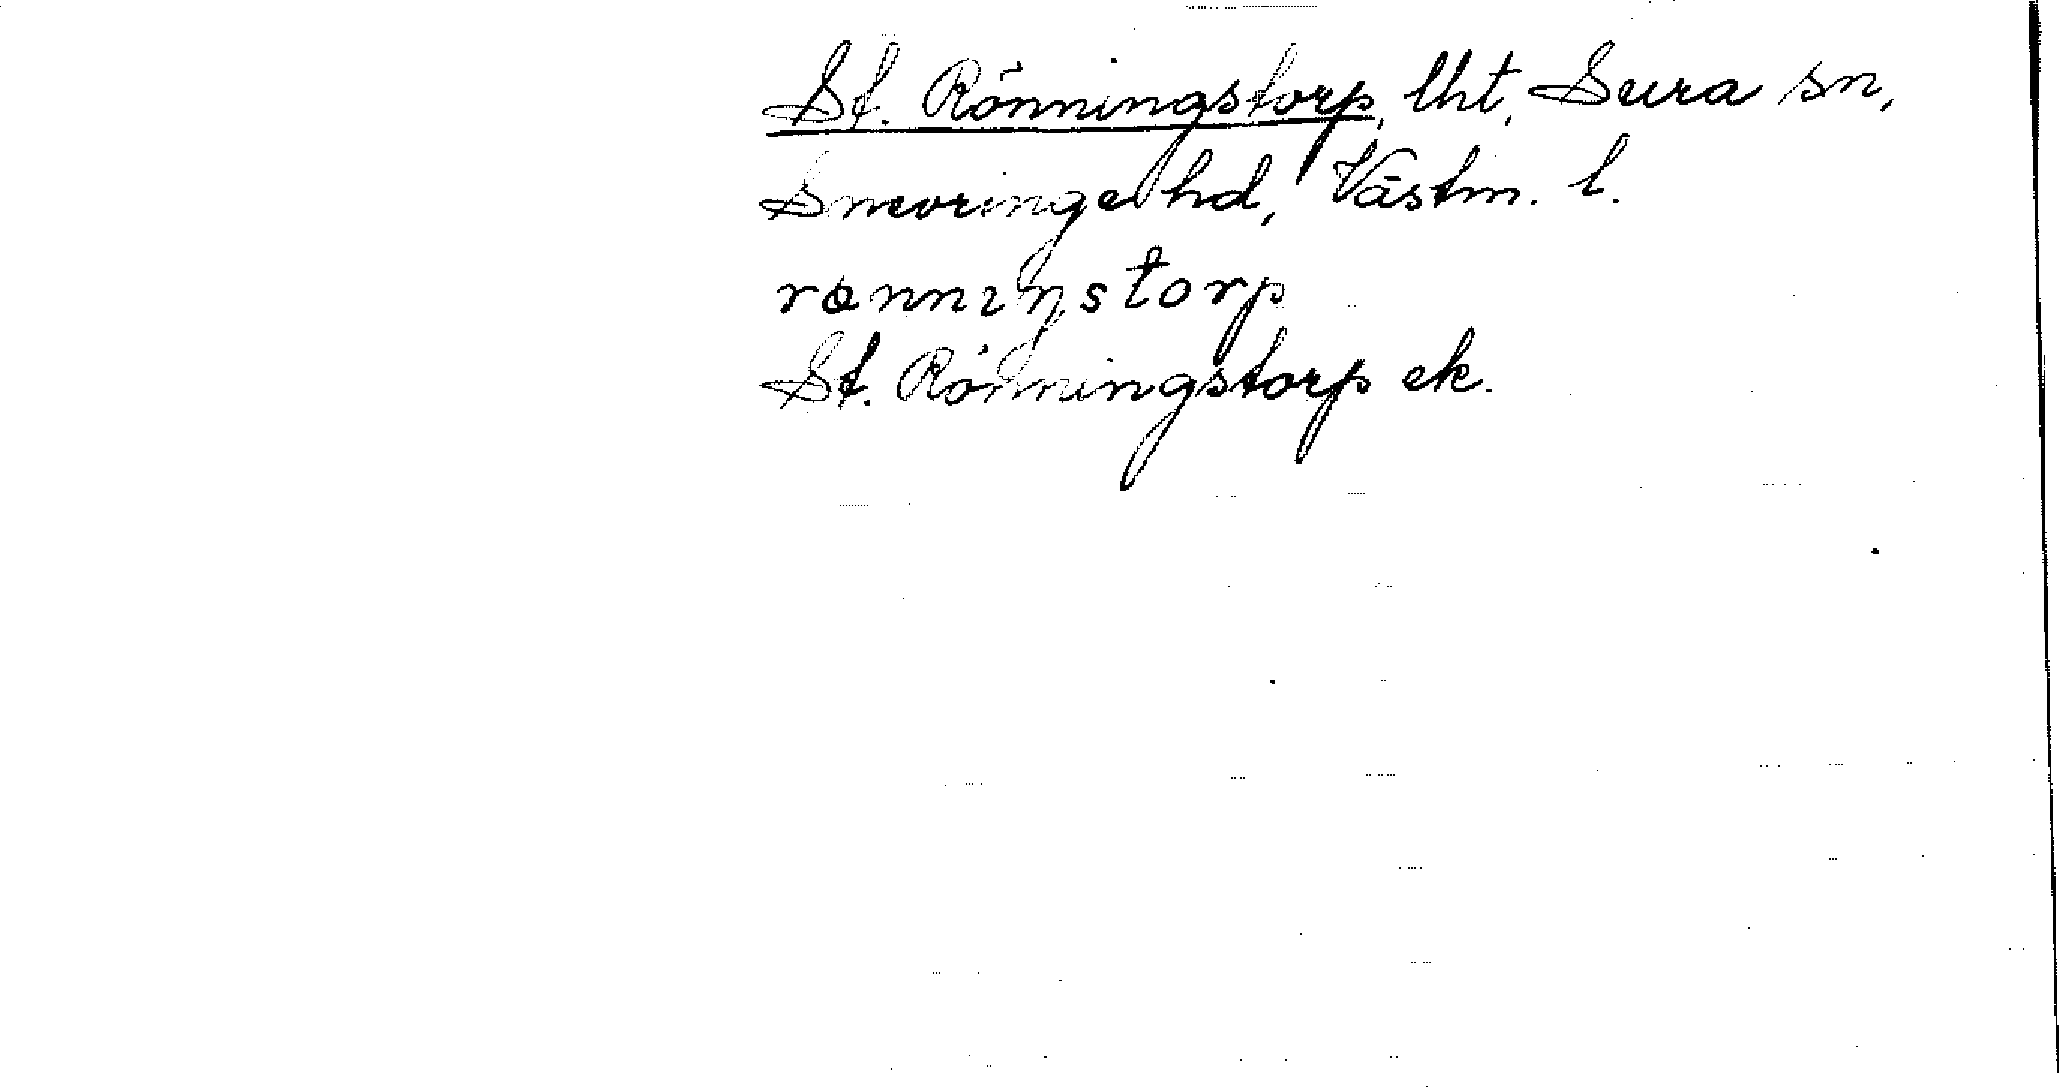 St. Rönningstorp, lht, Sura sn,
Snevringe hd, Västm. l.
rønnıŋstorp
St. Rönningstorp ek.